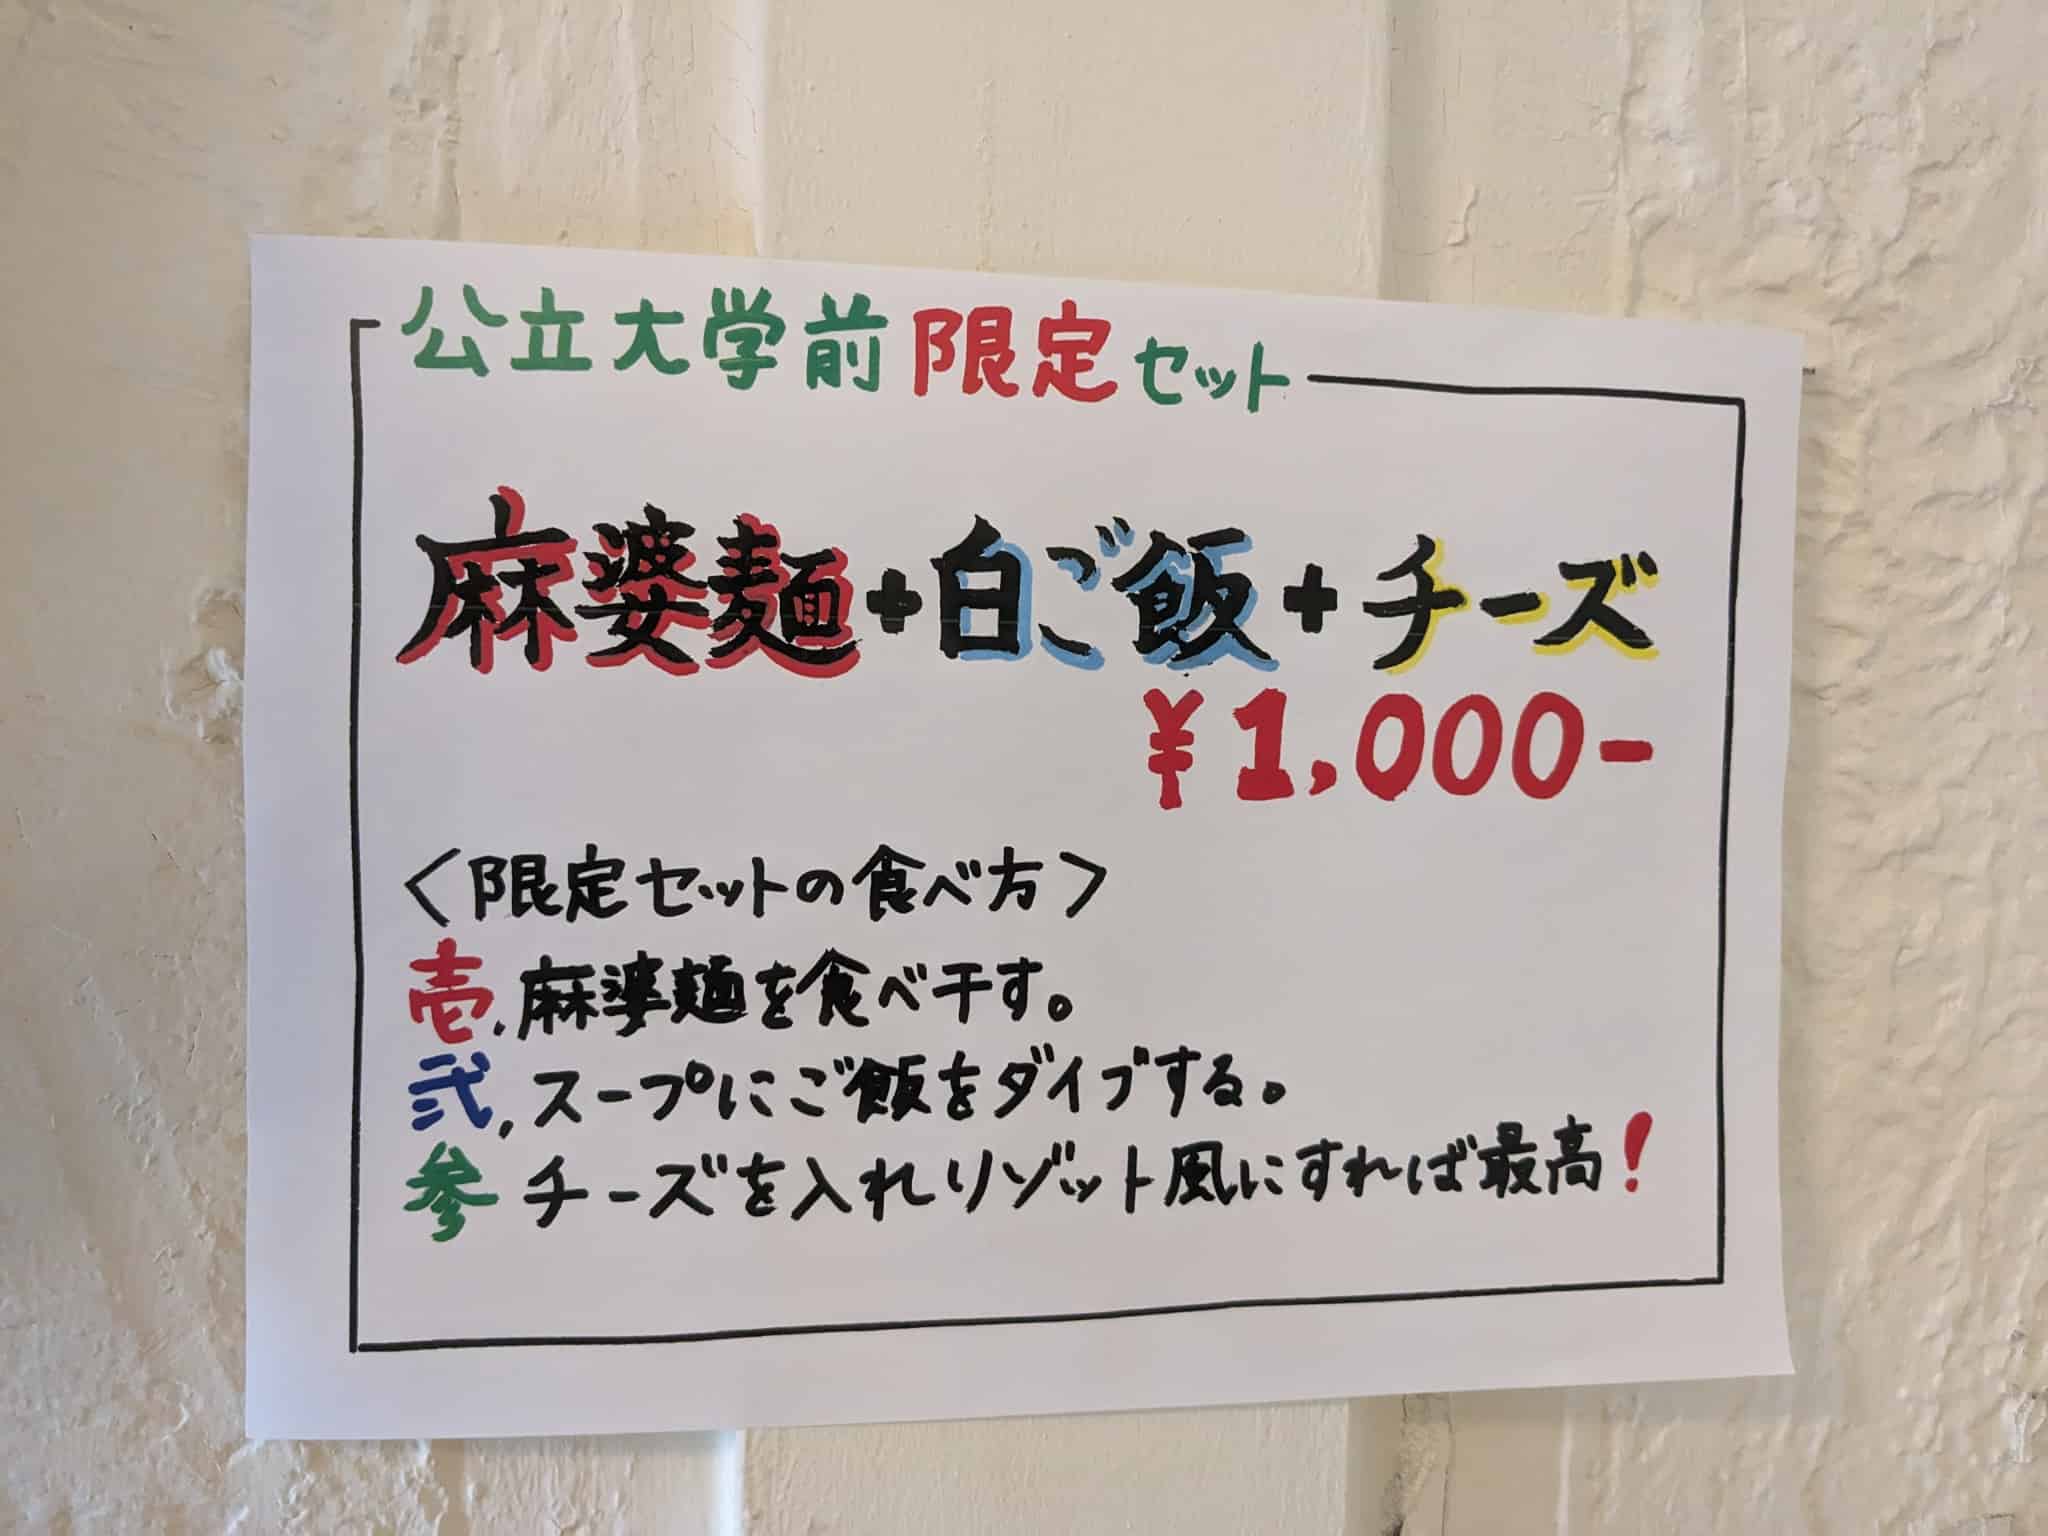 公立大学前限定セット
麻婆麺+白ご飯+チーズ
¥1,000-
〈限定セットの食べ方〉
壱.麻婆麺を食べ干す。
弐.スープにご飯をダイブする。
参 チーズを入れリゾット風にすれば最高!